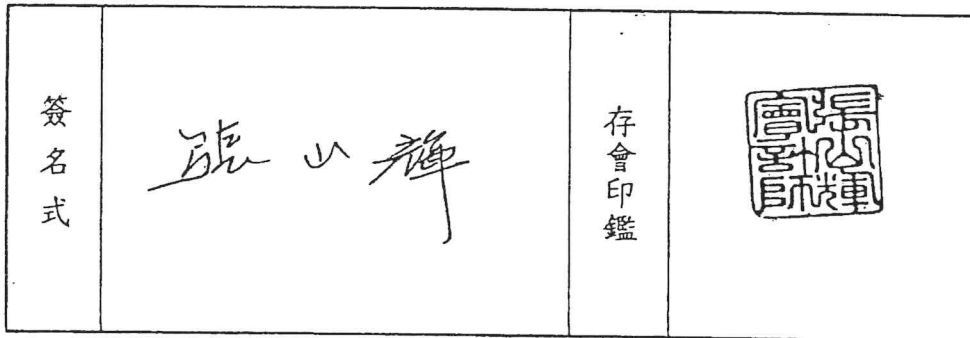 簽名式
張山輝
存會印鑑
張山輝
會計師